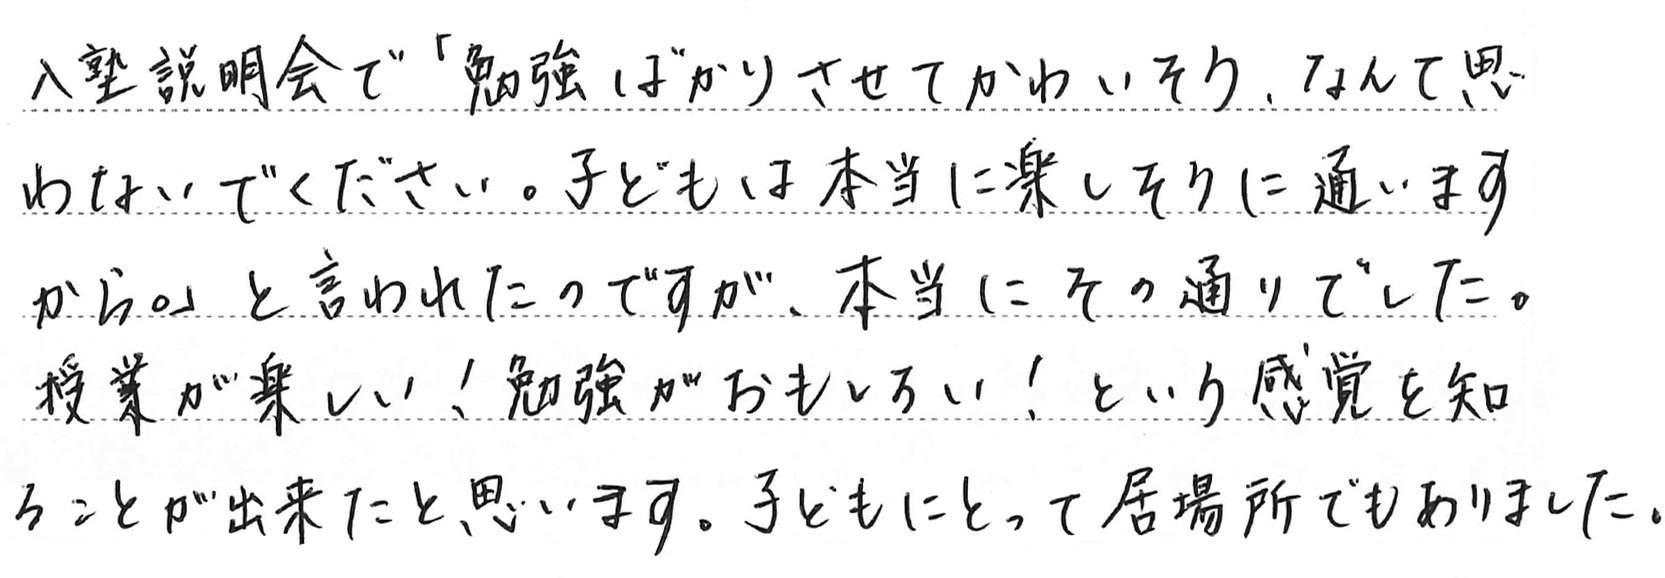 入塾説明会で「勉強ばかりさせてかわいそう、なんて思
わないでください。子どもは本当に楽しそうに通います
から。」と言われたのですが、本当にその通りでした。
授業が楽しい！勉強がおもしろい！という感覚を知
ることが出来たと思います。子どもにとって居場所でもありました。